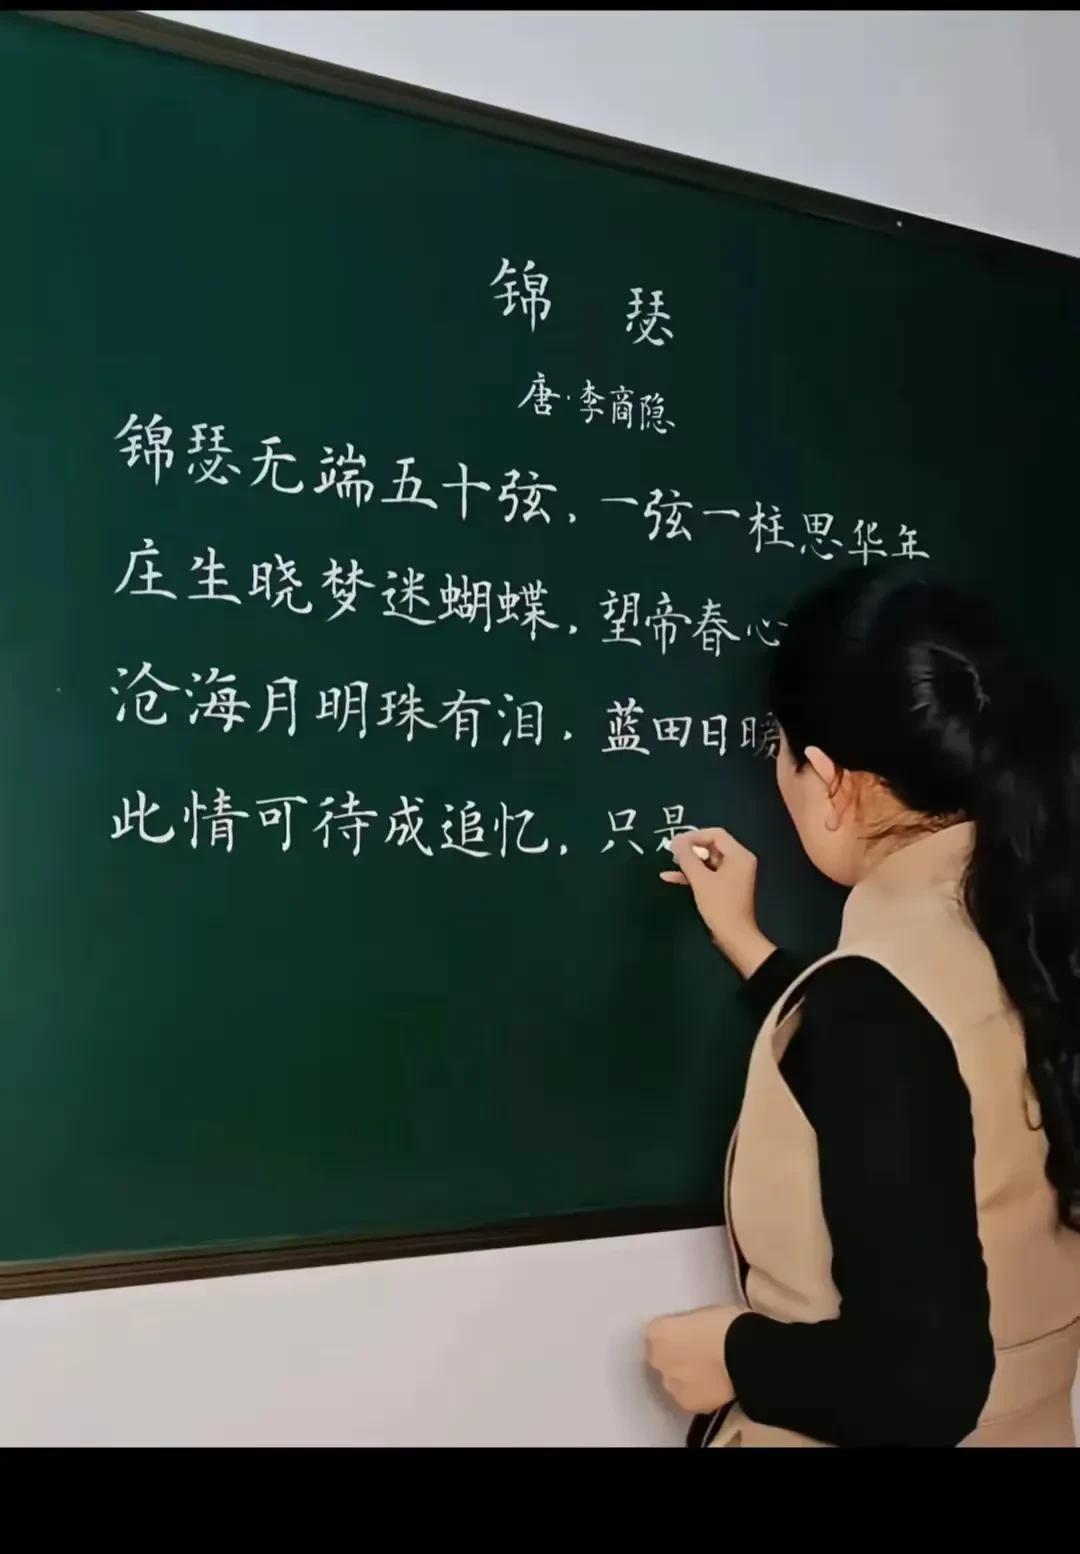 锦 瑟
唐·李商隐
锦瑟无端五十弦，一弦一柱思华年
庄生晓梦迷蝴蝶，望帝春心
沧海月明珠有泪，蓝田日暖
此情可待成追忆，只是